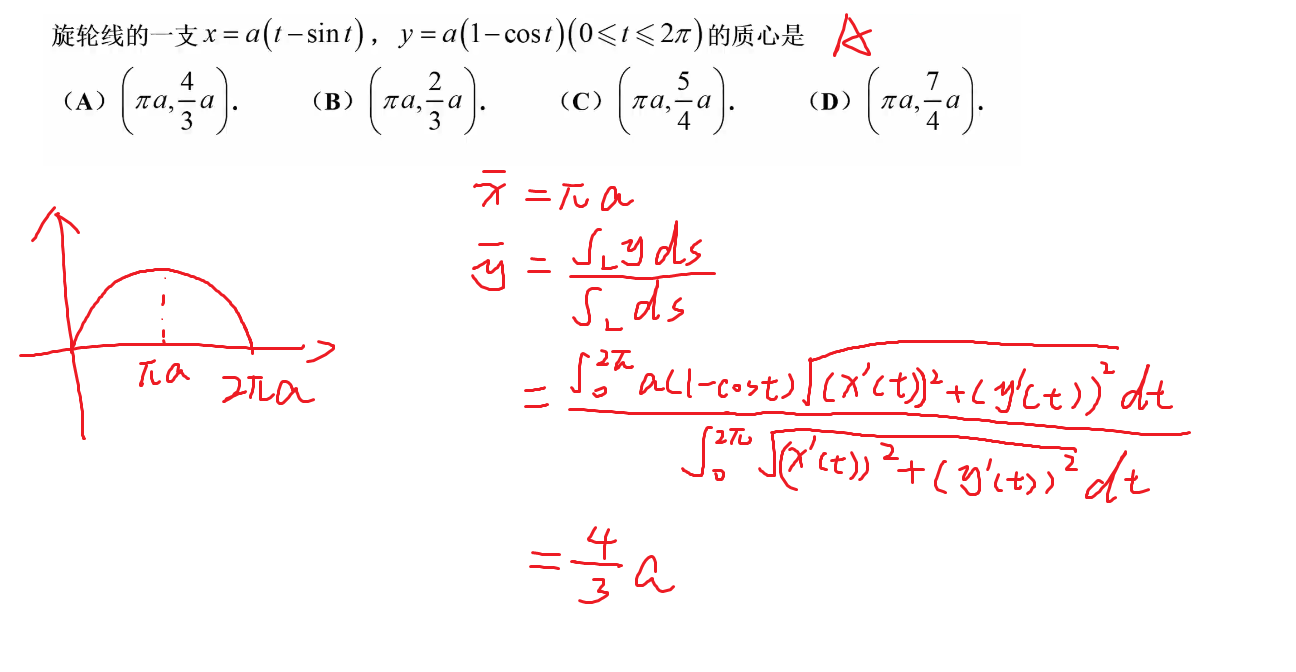 旋轮线的一支 x = a(t − sin t)，y = a(1 − cos t)(0 ⩽ t ⩽ 2π) 的质心是 A
（A）(πa, 4/3 a).　（B）(πa, 2/3 a).　（C）(πa, 5/4 a).　（D）(πa, 7/4 a).
x̄ = πa
ȳ = ∫_L y ds / ∫_L ds
πa
2πa
= ∫_0^{2π} a(1-cost)√((x'(t))² + (y'(t))²) dt / ∫_0^{2π} √((x'(t))² + (y'(t))²) dt
= 4/3 a